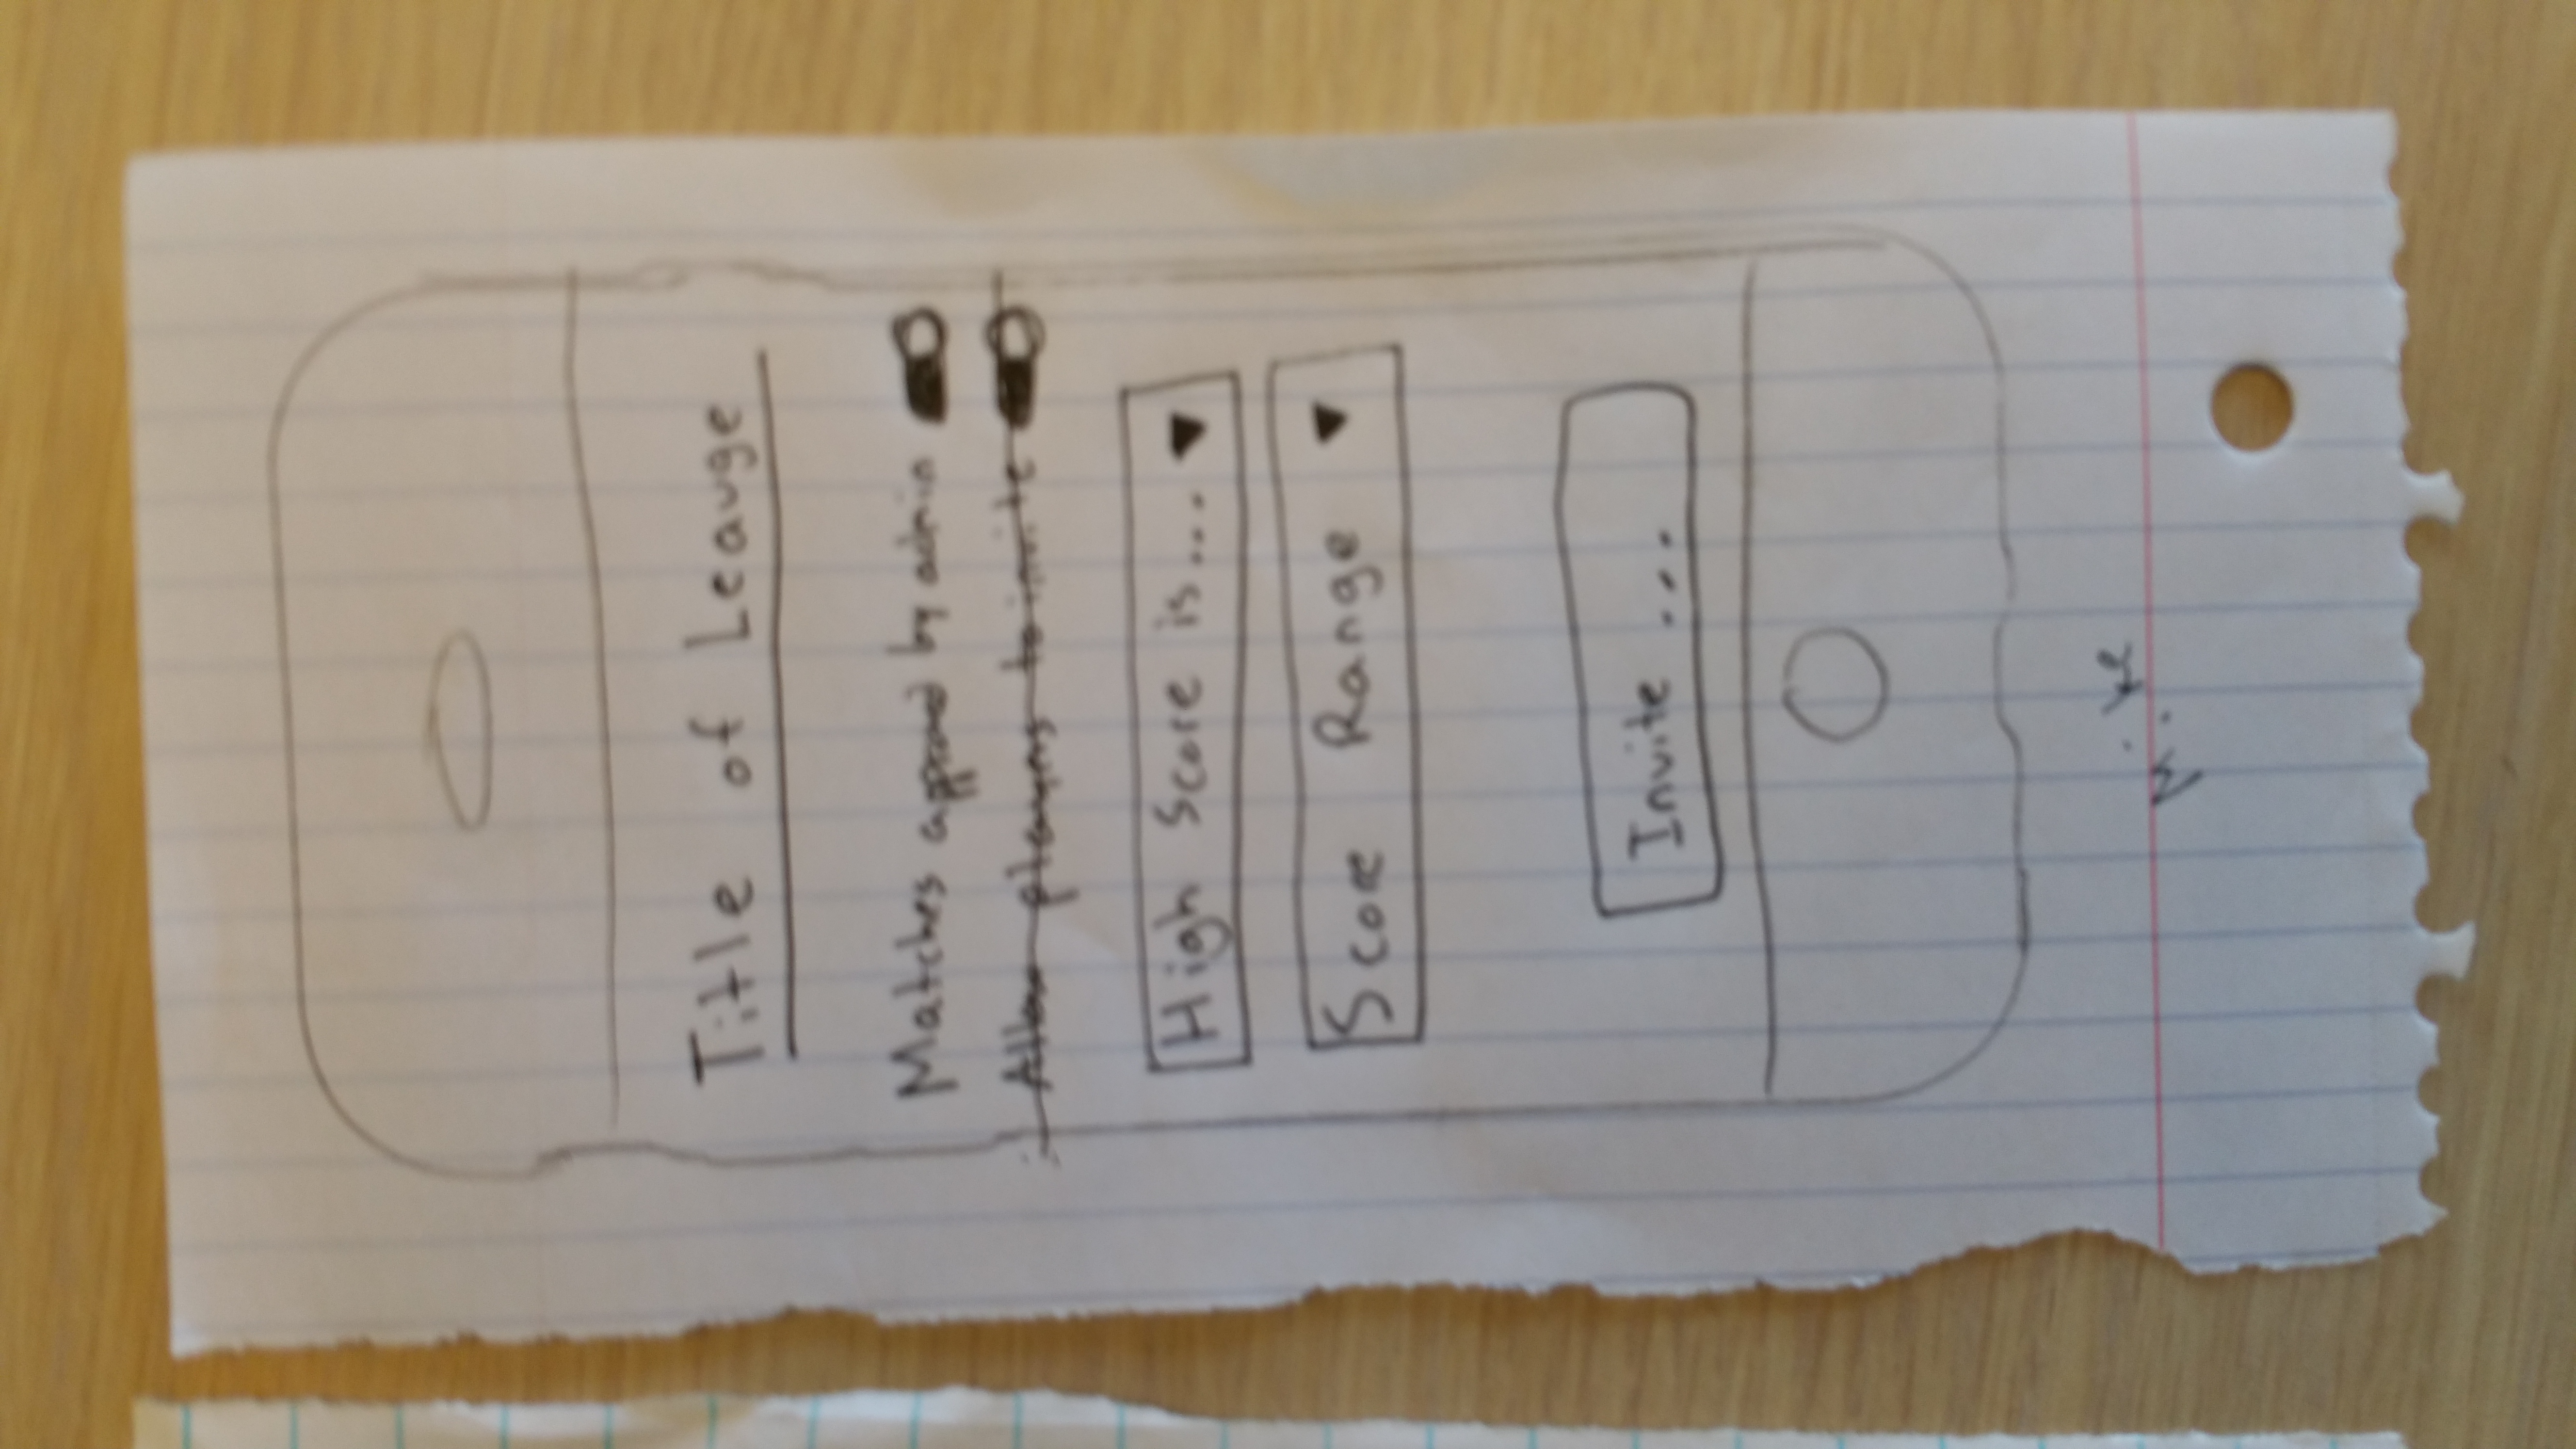 Title of Leauge
Matches approved by admin
Allow players to invite
High Score is...
Score Range
Invite ...
Mike